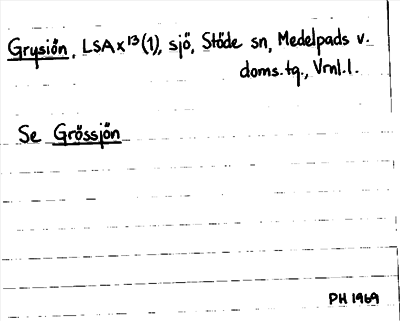 Grysiön, LSA x¹³(1), sjö, Stöde sn, Medelpads v.
doms.tg., Vrnl.l.
Se Grössjön
PH 1969